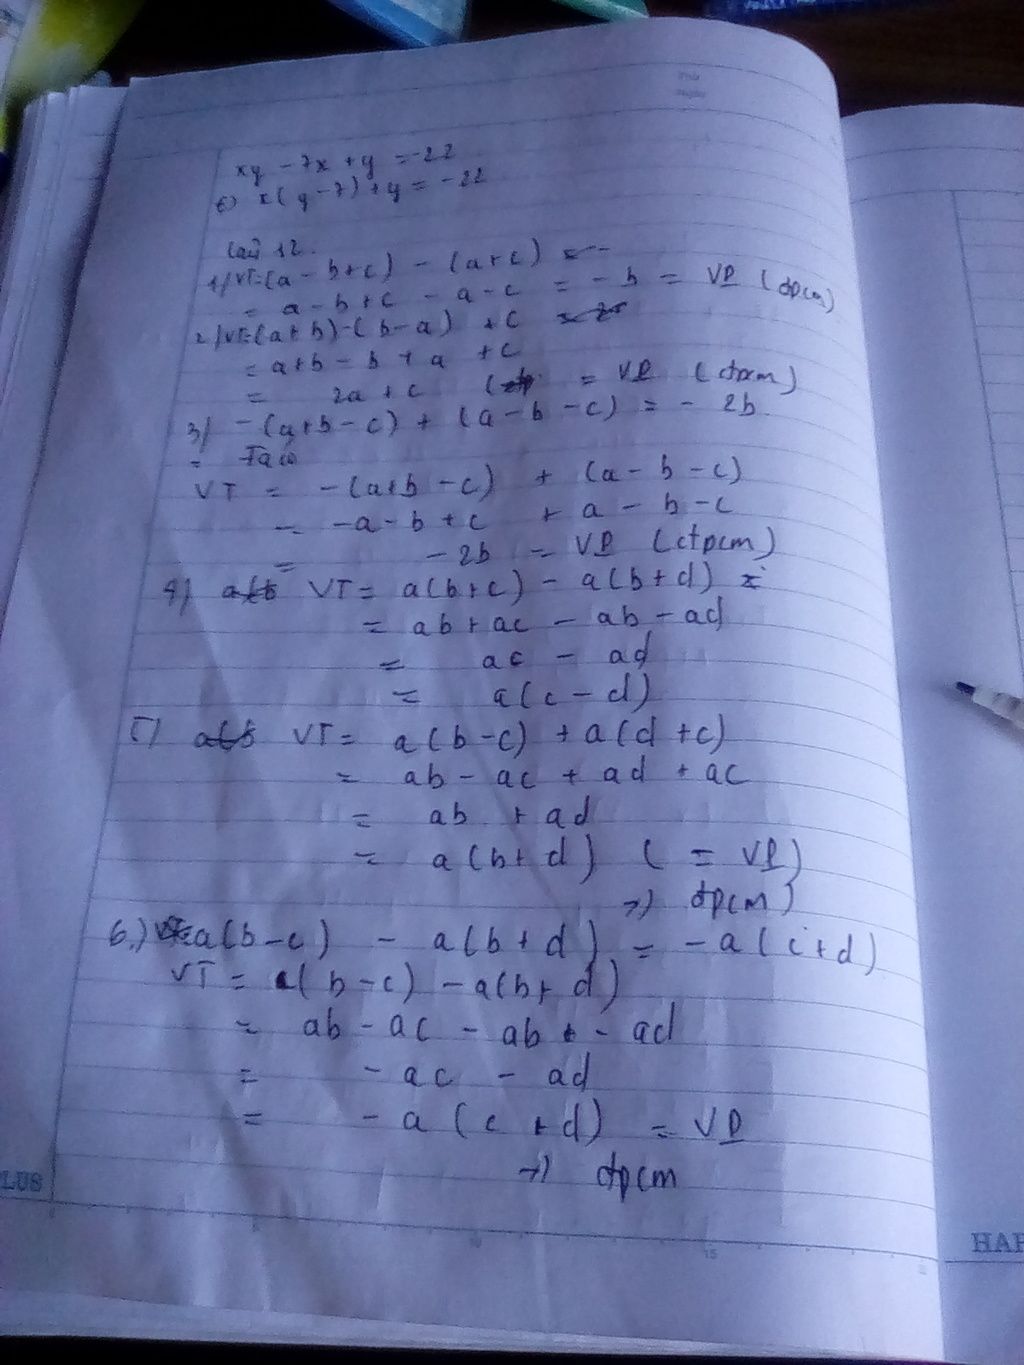 xy - 7x + y = -22
6) x(y-7) + y = -22
Câu 12.
1/ VT=(a-b+c) - (a+c) =
= a-b+c - a-c = -b = VP (đpcm)
2/ VT=(a+b)-(b-a) + c
= a+b - b + a + c
= 2a + c = VP (đpcm)
3/ -(a+b-c) + (a-b-c) = - 2b.
= Ta có
VT = -(a+b-c) + (a-b-c)
= -a-b+c + a-b-c
= -2b = VP (đpcm)
4) VT= a(b+c) - a(b+d) =
= ab+ac - ab-ad
= ac - ad
= a(c-d)
5) VT= a(b-c) + a(d+c)
= ab - ac + ad + ac
= ab + ad
= a(b+d) ( = VP)
=> đpcm)
6.) a(b-c) - a(b+d) = -a(c+d)
VT = a(b-c) - a(b+d)
= ab - ac - ab - ad
= -ac - ad
= -a(c+d) = VP
=> đpcm
PLUS
10
15
HAR